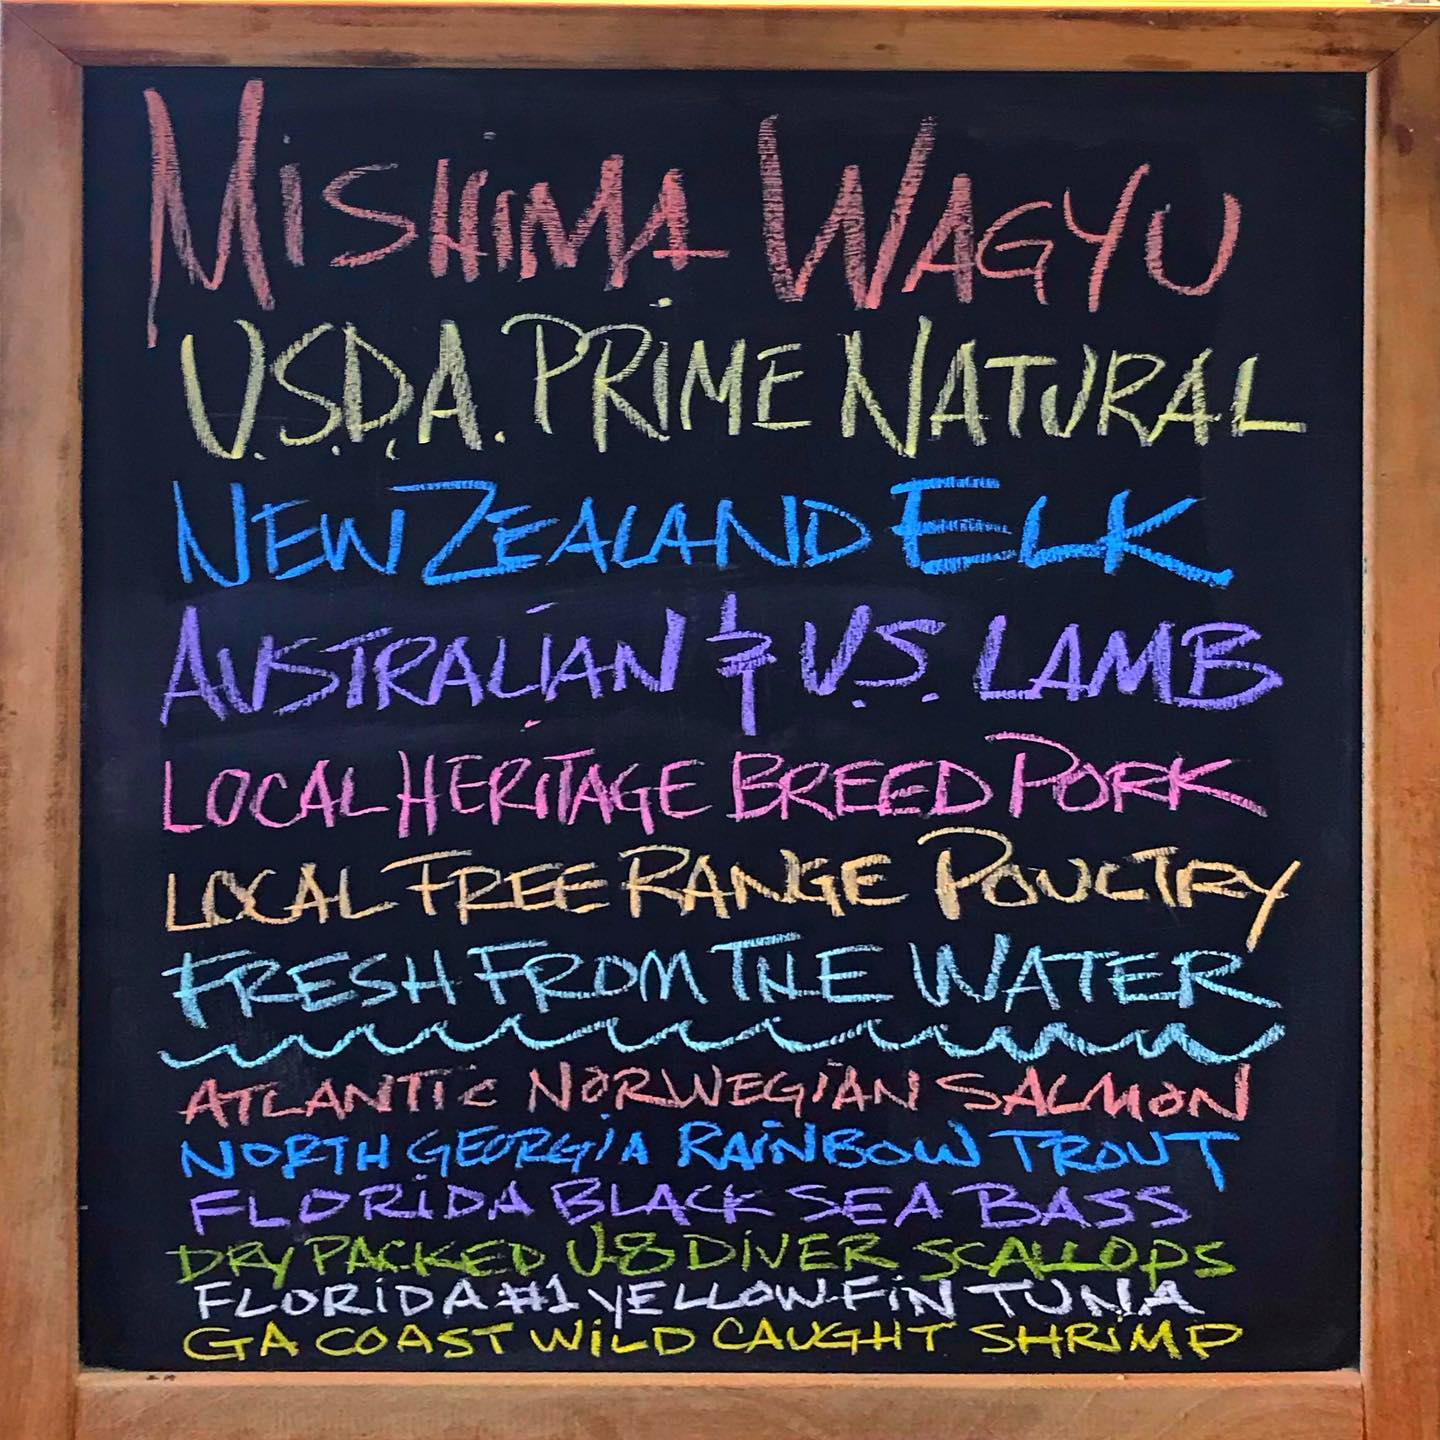 MiSHiMA WAGYU
U.S.D.A. PRiME NATURAL
NEW ZEALAND ELK
AUSTRALiAN & U.S. LAMB
LOCAL HERiTAGE BREED PORK
LOCAL FREE RANGE POULTRY
FRESH FROM THE WATER
ATLANTiC NORWEGiAN SALMON
NORTH GEORGiA RAiNBOW TROUT
FLORiDA BLACK SEA BASS
DRY PACKED U-8 DiVER SCALLOPS
FLORiDA #1 YELLOW-FiN TUNA
GA COAST WiLD CAUGHT SHRiMP